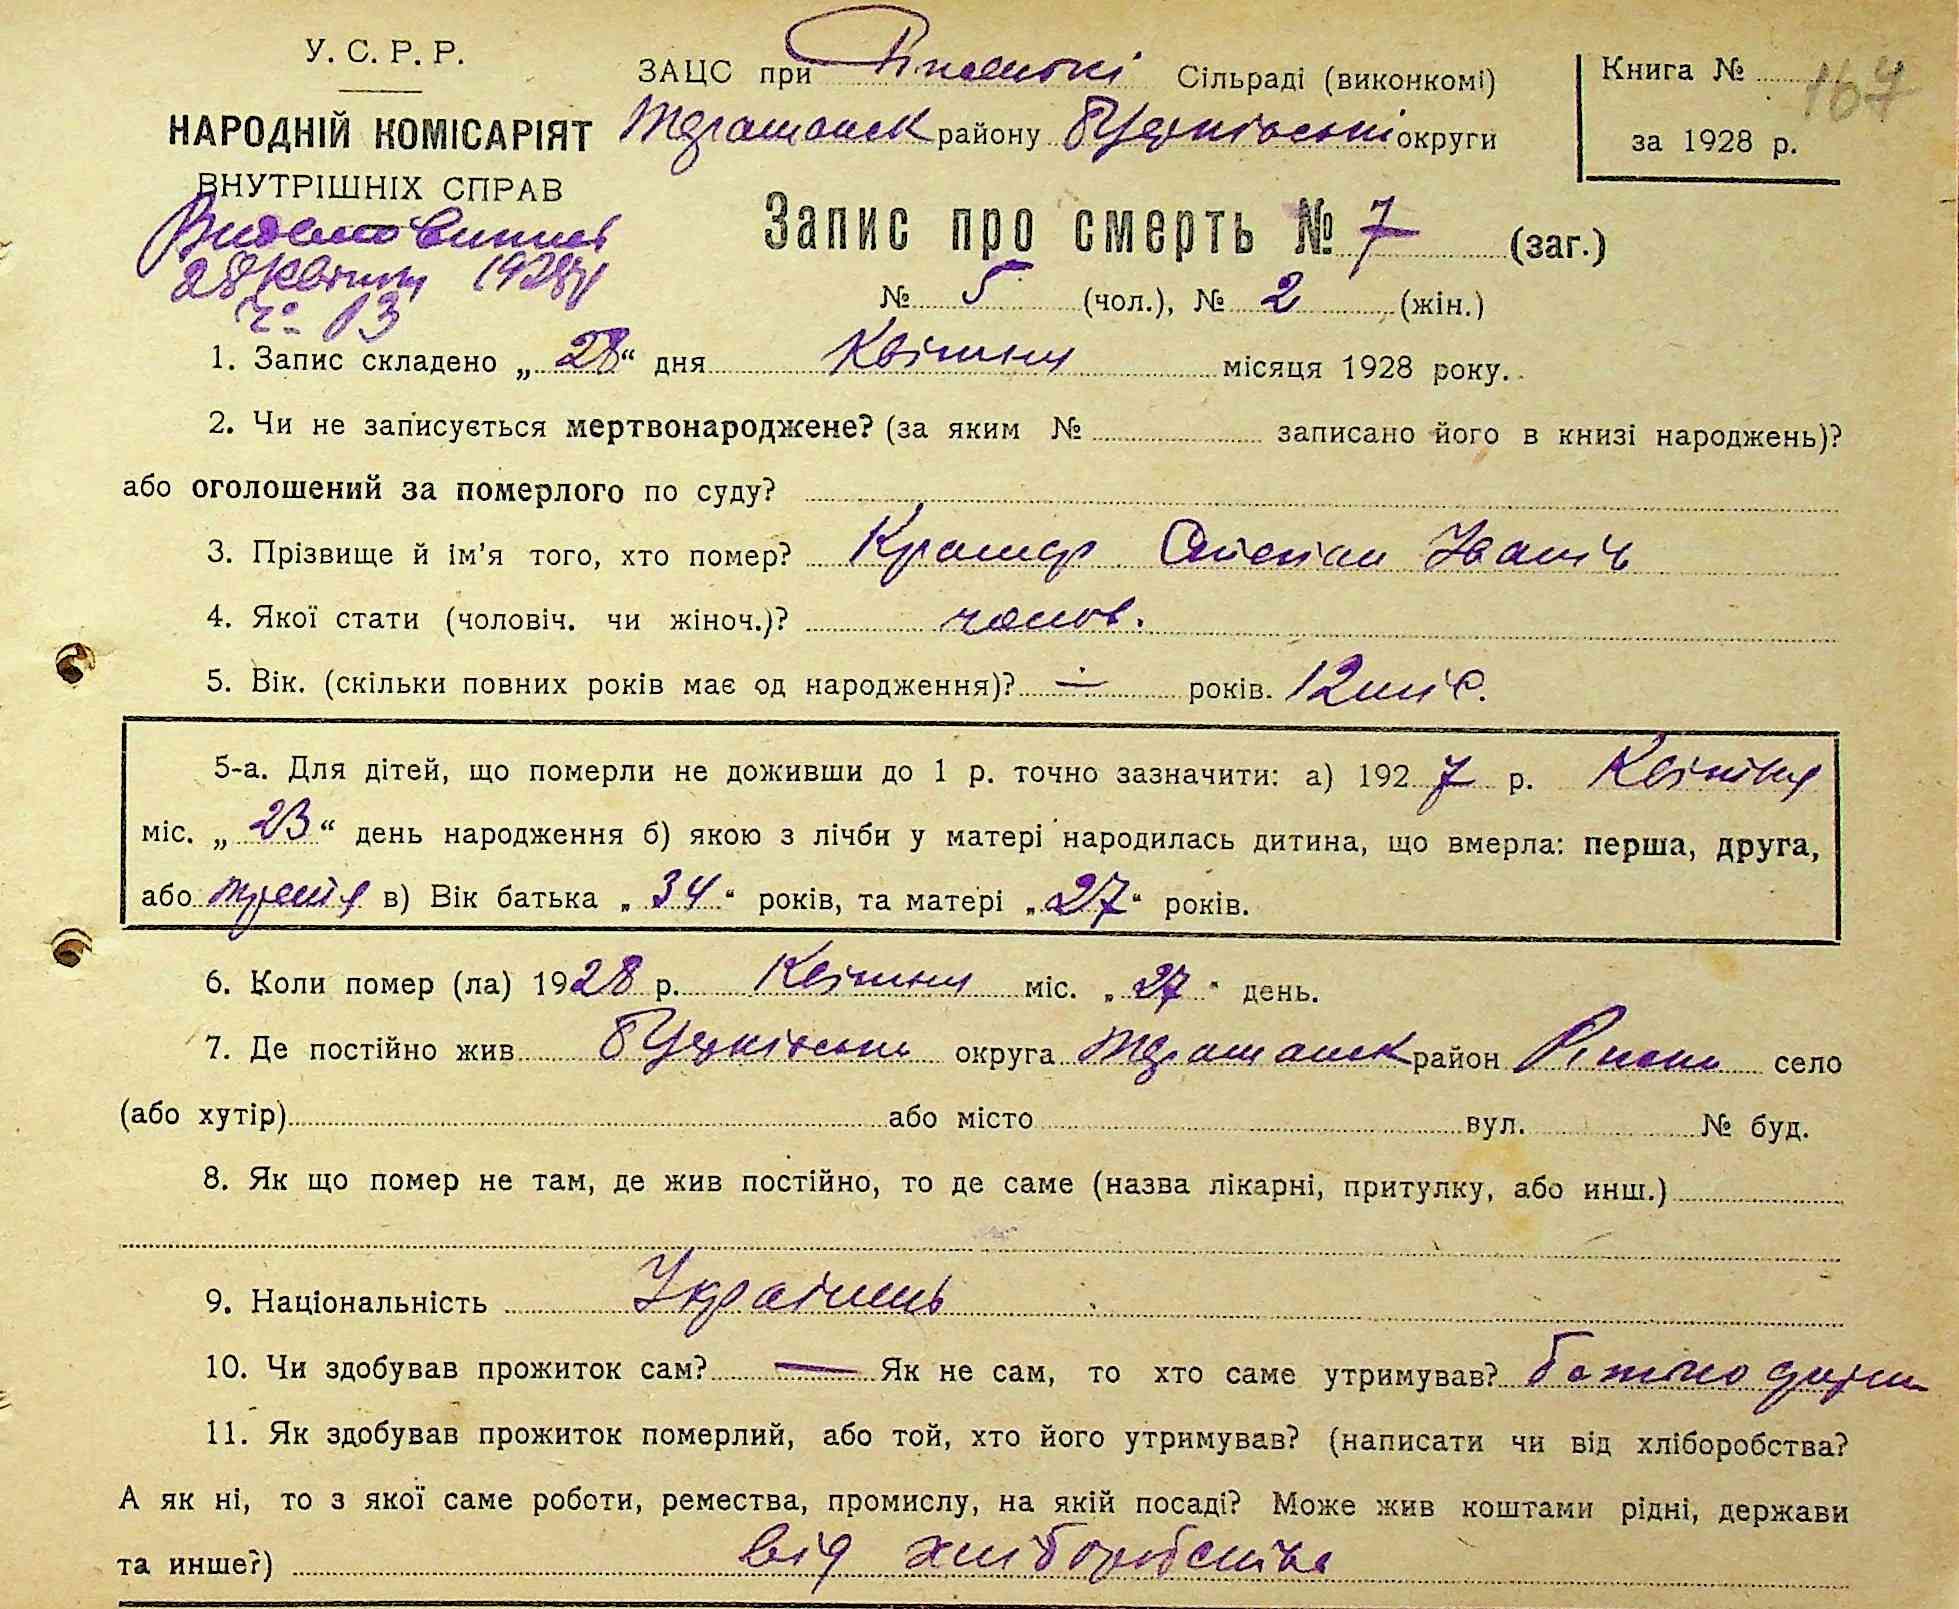 У.С.Р.Р.
ЗАЦС при Ріпкській Сільраді (виконкомі)
Книга № 167
НАРОДНІЙ КОМІСАРІЯТ
району Б Церківській округи
за 1928 р.
ВНУТРІШНІХ СПРАВ
Видано виписъ
28 Квітня 1928р
Запис про смерть № 7 (заг.)
№ 5 (чол.), № 2 (жін.)
ч. 13
1. Запис складено „28“ дня Квітня місяця 1928 року.
2. Чи не записується мертвонароджене? (за яким № записано його в книзі народжень)?
або оголошений за померлого по суду?
3. Прізвище й ім'я того, хто помер? Крамар Степан Іванів
4. Якої стати (чоловіч. чи жіноч.)? чолов.
5. Вік. (скільки повних років має од народження)? — років. 12 міс.
5-а. Для дітей, що померли не доживши до 1 р. точно зазначити: а) 1927 р. Квітня
міс. „23“ день народження б) якою з лічби у матері народилась дитина, що вмерла: перша, друга,
або третя в) Вік батька „34“ років, та матері „27“ років.
6. Коли помер (ла) 1928 р. Квітня міс. „27“ день.
7. Де постійно жив Б Церківськи округа район село
(або хутір) або місто вул. № буд.
8. Як що помер не там, де жив постійно, то де саме (назва лікарні, притулку, або инш.)
9. Національність Українець
10. Чи здобував прожиток сам? — Як не сам, то хто саме утримував? батько
11. Як здобував прожиток померлий, або той, хто його утримував? (написати чи від хліборобства?
А як ні, то з якої саме роботи, ремества, промислу, на якій посаді? Може жив коштами рідні, держави
та инше?) від хліборобства